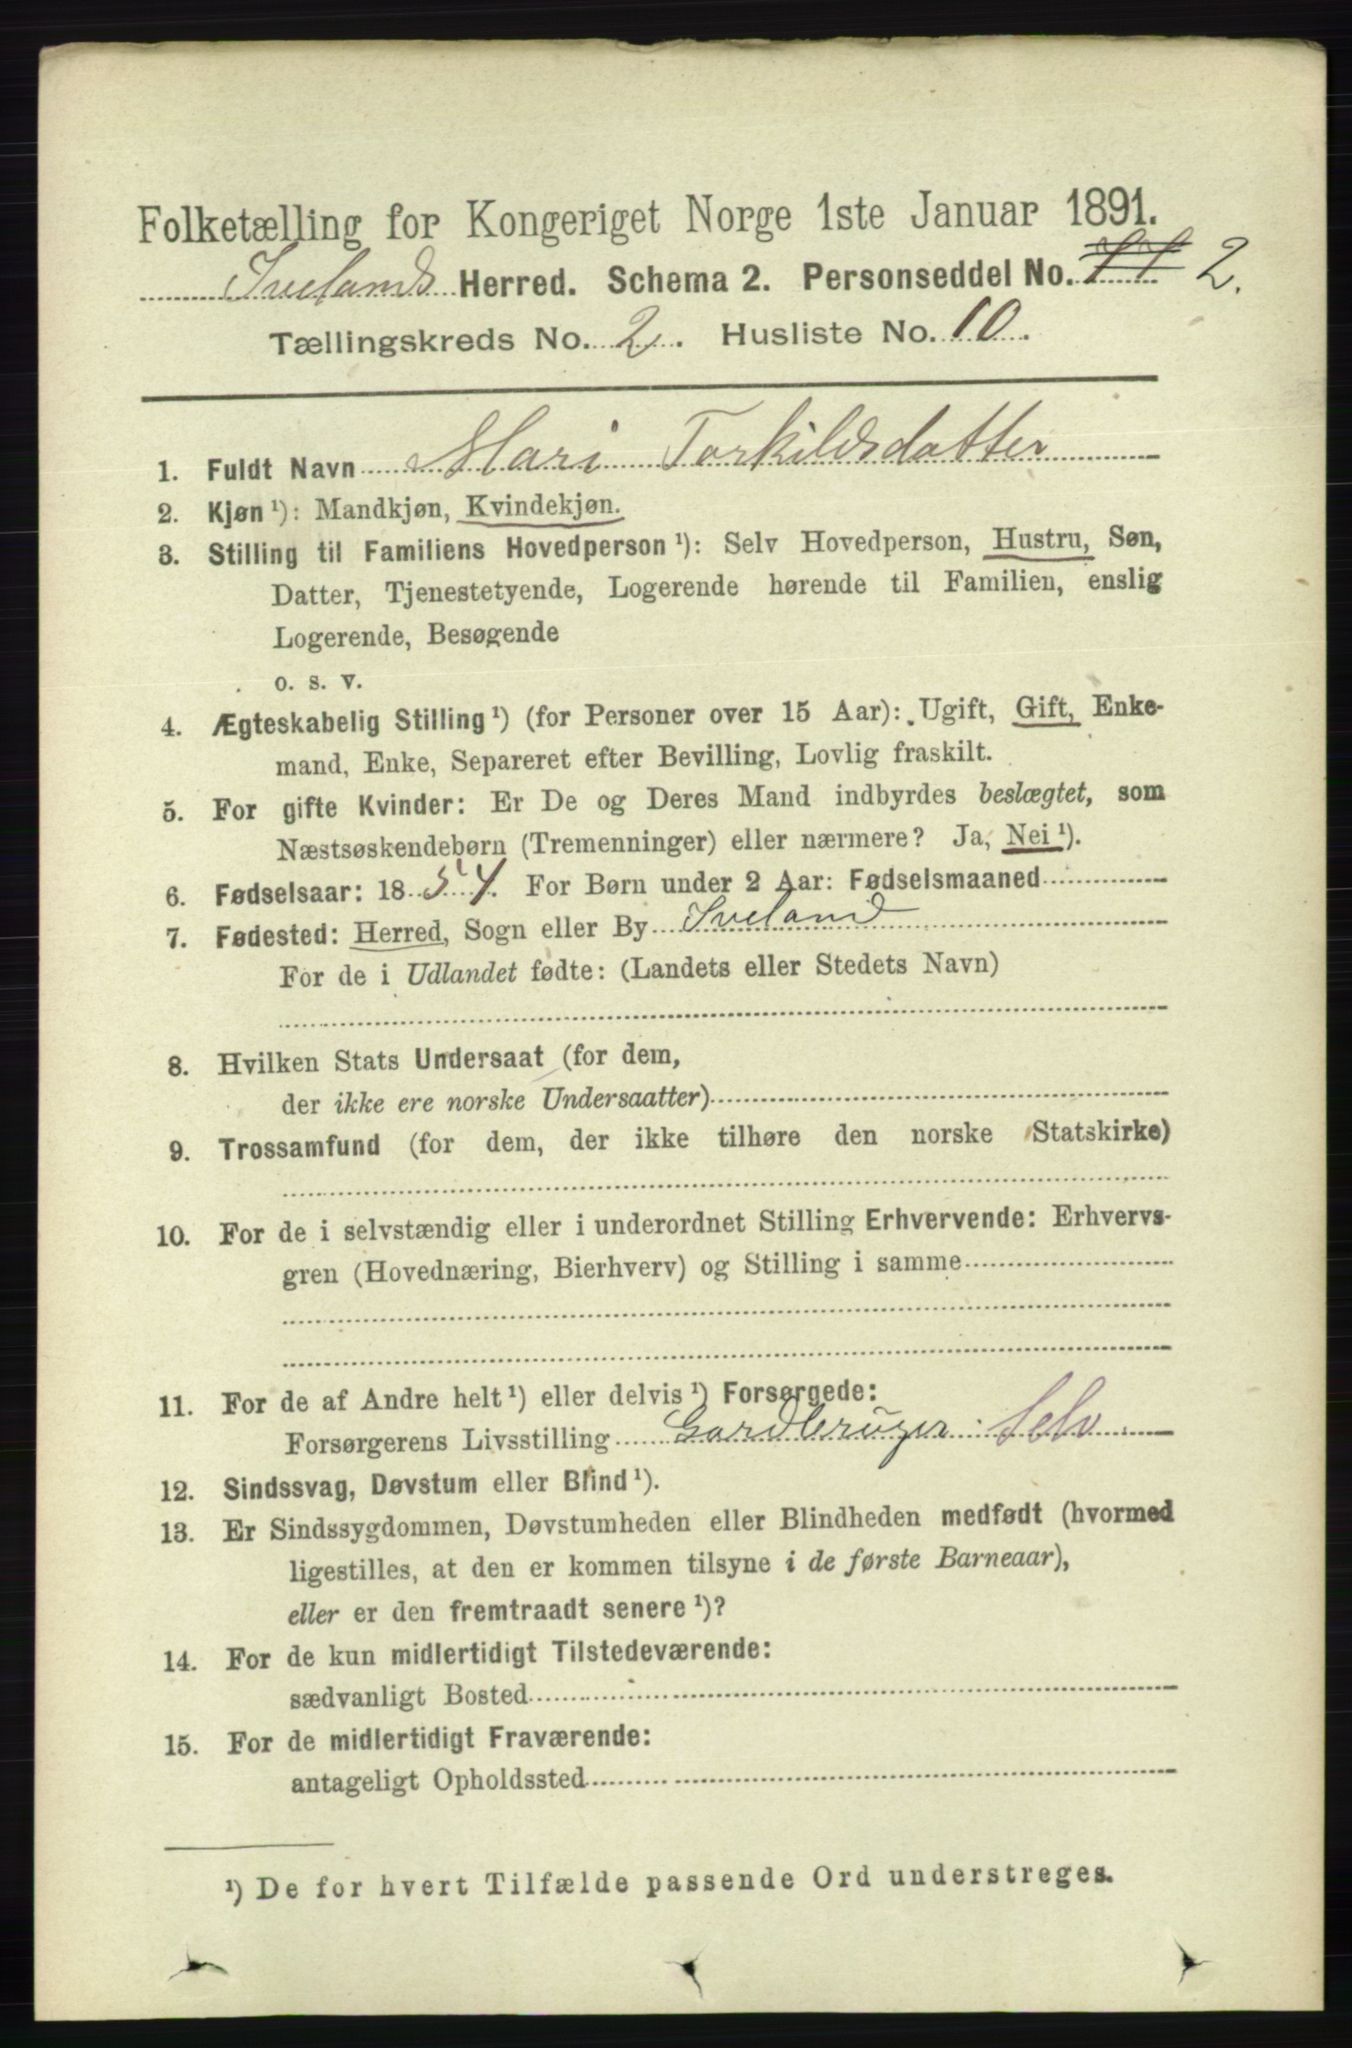 Folketælling for Kongeriget Norge 1ste Januar 1891.
Ivelands Herred. Schema 2. Personseddel No. 11 2.
Tællingskreds No. 2. Husliste No. 10.
1. Fuldt Navn Mari Torkildsdatter
2. Kjøn ¹): Mandkjøn, Kvindekjøn.
3. Stilling til Familiens Hovedperson ¹): Selv Hovedperson, Hustru, Søn,
Datter, Tjenestetyende, Logerende hørende til Familien, enslig
Logerende, Besøgende
o. s. v.
4. Ægteskabelig Stilling ¹) (for Personer over 15 Aar): Ugift, Gift, Enke-
mand, Enke, Separeret efter Bevilling, Lovlig fraskilt.
5. For gifte Kvinder: Er De og Deres Mand indbyrdes beslægtet, som
Næstsøskendebørn (Tremenninger) eller nærmere? Ja, Nei ¹).
6. Fødselsaar: 1854. For Børn under 2 Aar: Fødselsmaaned
7. Fødested: Herred, Sogn eller By Iveland
For de i Udlandet fødte: (Landets eller Stedets Navn)
8. Hvilken Stats Undersaat (for dem,
der ikke ere norske Undersaatter)
9. Trossamfund (for dem, der ikke tilhøre den norske Statskirke)
10. For de i selvstændig eller i underordnet Stilling Erhvervende: Erhvervs-
gren (Hovednæring, Bierhverv) og Stilling i samme
11. For de af Andre helt ¹) eller delvis ¹) Forsørgede:
Forsørgerens Livsstilling Gardbruger. Selv.
12. Sindssvag, Døvstum eller Blind ¹).
13. Er Sindssygdommen, Døvstumheden eller Blindheden medfødt (hvormed
ligestilles, at den er kommen tilsyne i de første Barneaar),
eller er den fremtraadt senere ¹)?
14. For de kun midlertidigt Tilstedeværende:
sædvanligt Bosted
15. For de midlertidigt Fraværende:
antageligt Opholdssted
¹) De for hvert Tilfælde passende Ord understreges.